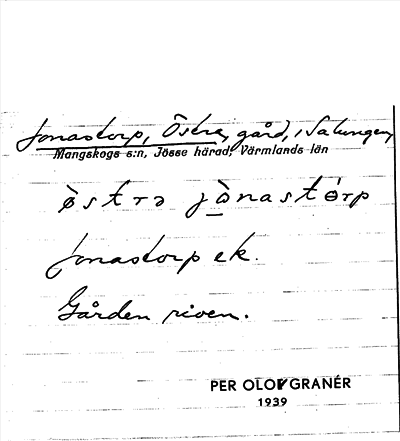 Jonastorp, Östra, gård, i Salungen,
Mangskogs s:n, Jösse härad, Värmlands län
ö̀strə jò̱nastórp
Jonastorp ek.
Gården riven.
PER OLOF GRANÉR
1939